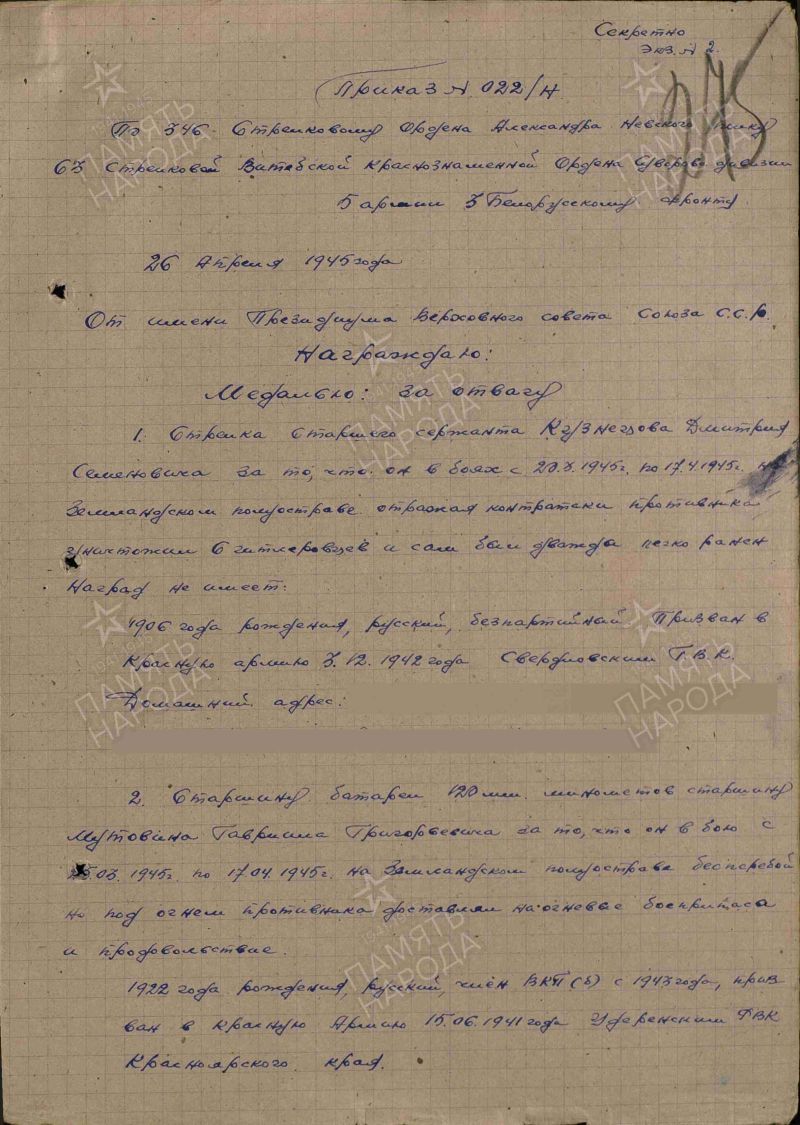 Секретно
Экз. № 2.
275
Приказ № 022/н
По 346 Стрелковому Ордена Александра Невского полку
63 Стрелковой Витебской Краснознаменной Ордена Суворова дивизии
5 армии 3 Белорусскому фронту.
26 Апреля 1945 года
От имени Президиума Верховного совета Союза С.С.Р.
Награждаю:
Медалью: за отвагу
1. Стрелка старшего сержанта Кузнецова Дмитрия
Семеновича за то, что он в боях с 20.3.1945г. по 17.4.1945г. на
Земландском полуострове отражая контратаки противника
уничтожил 6 гитлеровцев и сам был дважды легко ранен
Наград не имеет.
1906 года рождения, русский, безпартийный. Призван в
Красную армию 3.12.1942 года Свердловским Г.В.К.
Домашний адрес:
2. Старшину батареи 120 мм. минометов старшину
Мутовина Гавриила Григорьевича за то, что он в бою с
03.1945г. по 17.04.1945г. на Земландском полуострове бесперебой
но под огнем противника доставлял на огневые боеприпаса
и продовольствие.
1922 года рождения, русский, член ВКП(б) с 1943 года, приз
ван в Красную Армию 15.06.1941 года РВК
Красноярского края.
ПАМЯТЬ
НАРОДА
ПАМЯТЬ
НАРОДА
ПАМЯТЬ
НАРОДА
ПАМЯТЬ
НАРОДА
ПАМЯТЬ
НАРОДА
ПАМЯТЬ
НАРОДА